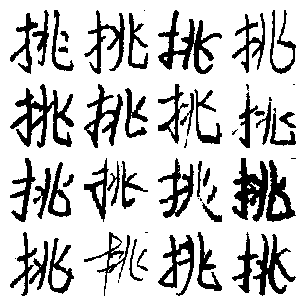 挑挑挑挑
挑挑挑挑
挑挑挑挑
挑挑挑挑